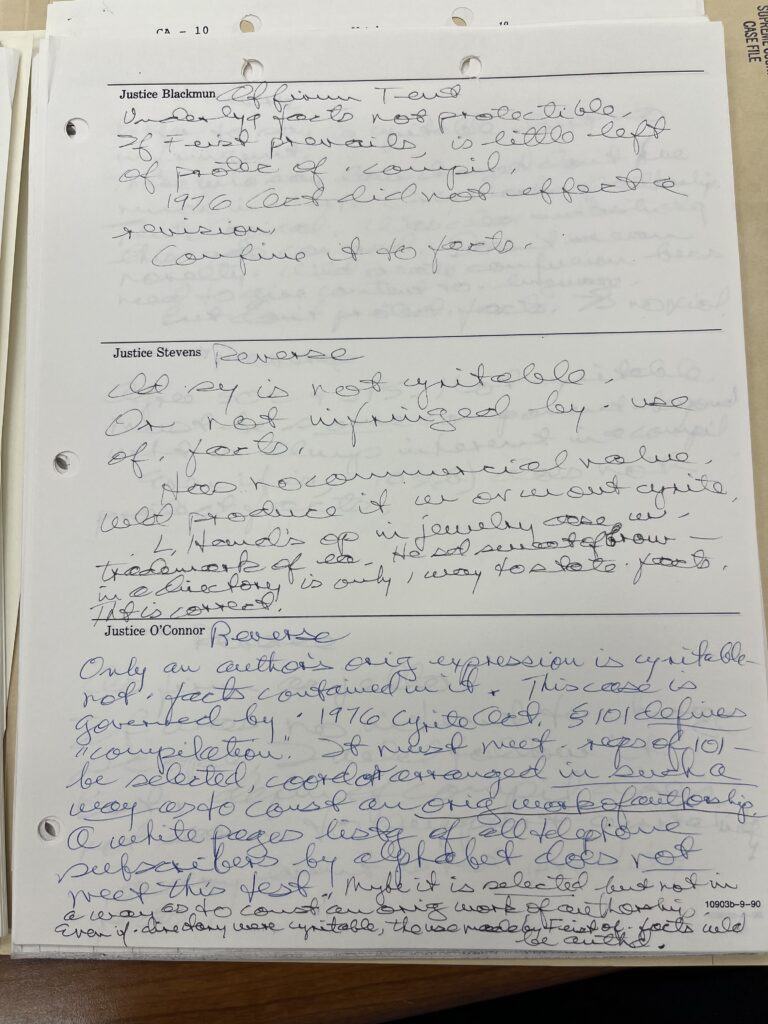 CA - 10
SUPREME COURT
CASE FILE
Justice Blackmun Affirm Tent
Underlyg facts not protectible.
If Feist prevails, is little left
of protec of · compil.
1976 Act did not effect a
revision.
Confine it to facts.
Justice Stevens Reverse
is not cyritable.
Or not infringed by · use
of · facts.
Has no commercial value.
Wld produce it w or w out cyrite.
L. Hand's op in jewelry case
trademark of
in a directory is only · way to state · facts.
Tht is correct.
Justice O'Connor Reverse
Only an author's orig expression is cyritable
not · facts contained in it. This case is
governed by · 1976 Cyrite Act. § 101 defines
"compilation". It must meet · reqs of 101 —
be selected, coord or arranged in such a
way as to const an orig work of authorship.
A white pages listg of all telephone
subscribers by alphabet does not
meet this test. Maybe it is selected but not in
a way as to const an orig work of authorship.
10903b-9-90
Even if · directory were cyritable, the use made by Feist of · facts wld
be